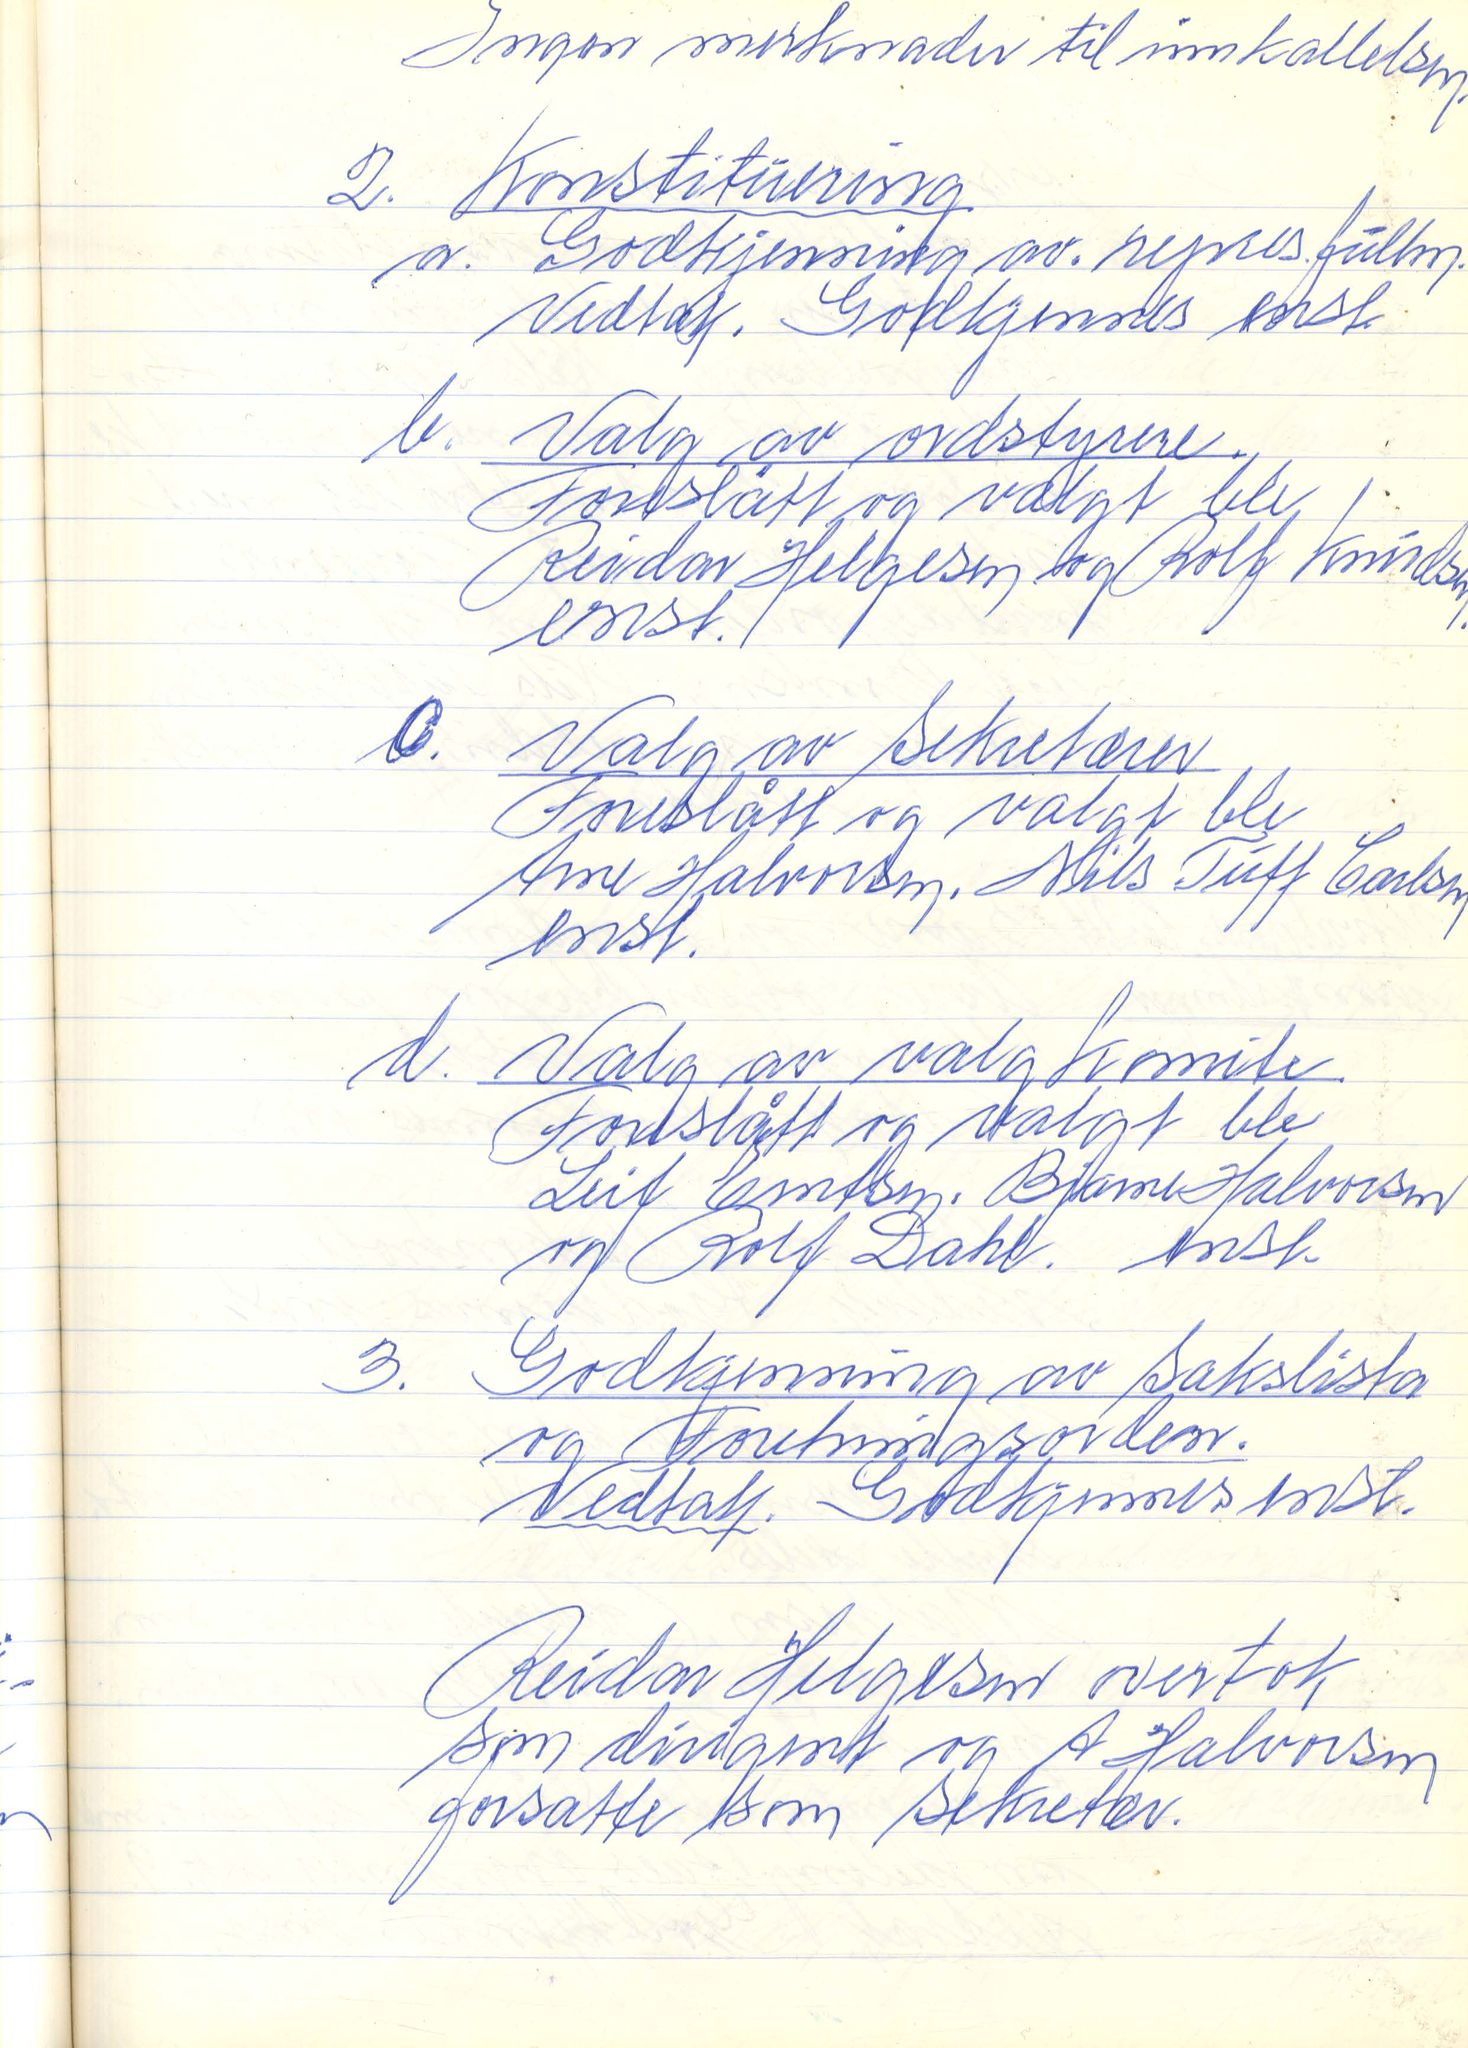 Ingen merknader til innkallelsen.
2. Konstituering
a. Godkjenning av repres. fullm.
Vedtak. Godkjennes enst.
b. Valg av ordstyrere.
Foreslått og valgt ble
Reidar Helgesen og Rolf Knudsen.
enst.
c. Valg av Sekretærer
Foreslått og valgt ble
Arne Halvorsen. Nils Tuff Carlsen
enst.
d. Valg av valgkomite.
Foreslått og valgt ble
Leif Berntsen. Bjarne Halvorsen
og Rolf Dahl. enst.
3. Godkjenning av Sakslista
og Foretningsorden.
Vedtak. Godkjennes enst.
Reidar Helgesen overtok
som dirigent og A Halvorsen
forsatte som sekretær.